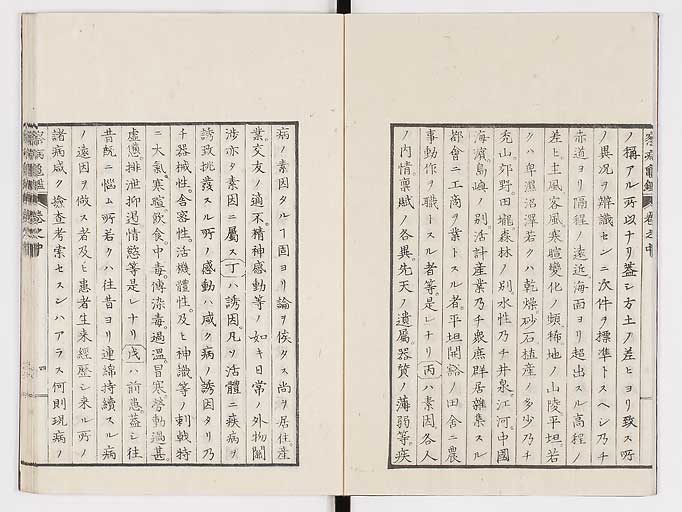 ノ稱アル所以ナリ蓋シ方土ノ差ヒヨリ致ス所
ノ異況ヲ辨識センニ次件ヲ標準トスヘシ乃チ
赤道ヨリ隔程ノ遠近海面ヨリ超出スル高程ノ
差ヒ主風客風寒暄變化ノ頻稀地ノ山陵平坦若
クハ卑濕沼澤若クハ乾燥砂石植産ノ多少乃チ
禿山郊野田壠森林ノ別水性乃チ井泉江河中國
海濱島嶼ノ別活計産業乃チ衆庶群居雜集スル
都會ニ工商ヲ業トスル者平坦開豁ノ田舎ニ農
事動作ヲ職トスル者等是レナリ丙ハ素因各人
ノ内情禀賦ノ各異先天ノ遺屬器質ノ薄弱等疾
病ノ素因タルヿ固ヨリ論ヲ俟タス尚ヲ居住産
業交友ノ適不精神感動等ノ如キ日常ノ外物關
渉亦タ素因ニ屬ス丁ハ誘因凡ソ活體ニ疾病ヲ
誘致挑發スル所ノ感動ハ咸ク病ノ誘因タリ乃
チ器械性舍密性活機體性及ヒ神識等ノ刺戟特
ニ大氣寒暄飲食中毒傳染毒過温冒寒勞動過甚
虚憊排泄抑遏情慾等是レナリ戊ハ前患蓋シ往
昔既ニ惱ム所若クハ往昔ヨリ連綿持續スル病
ノ遠因ヲ做ス者及ヒ患者生來經歴シ來ル所ノ
諸病咸ク撿査考索セスンハアラス何則現病ノ
四